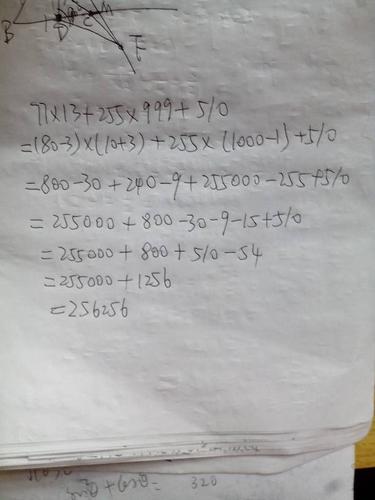 B
D
C
M
F
77×13+255×999+510
=(80-3)×(10+3)+255×(1000-1)+510
=800-30+240-9+255000-255+510
=255000+800-30-9-15+510
=255000+800+510-54
=255000+1256
=256256
sin²θ+cos²θ=
320